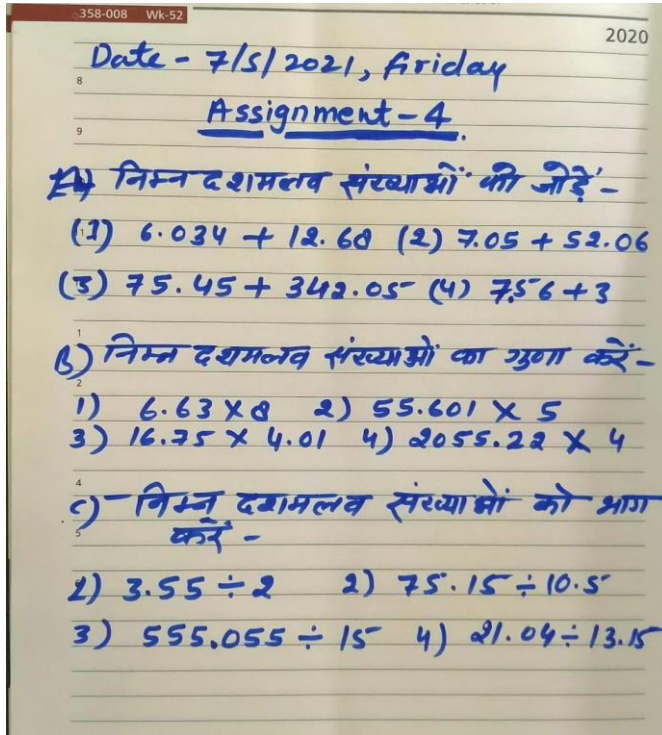 358-008 Wk-52
2020
Date - 7/5/2021, Friday
8
Assignment-4.
9
A) निम्न दशमलव संख्याओं को जोड़ें -
(1) 6.034 + 12.68 (2) 7.05 + 52.06
(3) 75.45 + 342.05 (4) 7.56 + 3
1
B) निम्न दशमलव संख्याओं का गुणा करें -
2
1) 6.63 × 8 2) 55.601 × 5
3) 16.75 × 4.01 4) 2055.22 × 4
4
C) - निम्न दशमलव संख्याओं को भाग
5
करें -
1) 3.55 ÷ 2 2) 75.15 ÷ 10.5
3) 555.055 ÷ 15 4) 21.04 ÷ 13.15